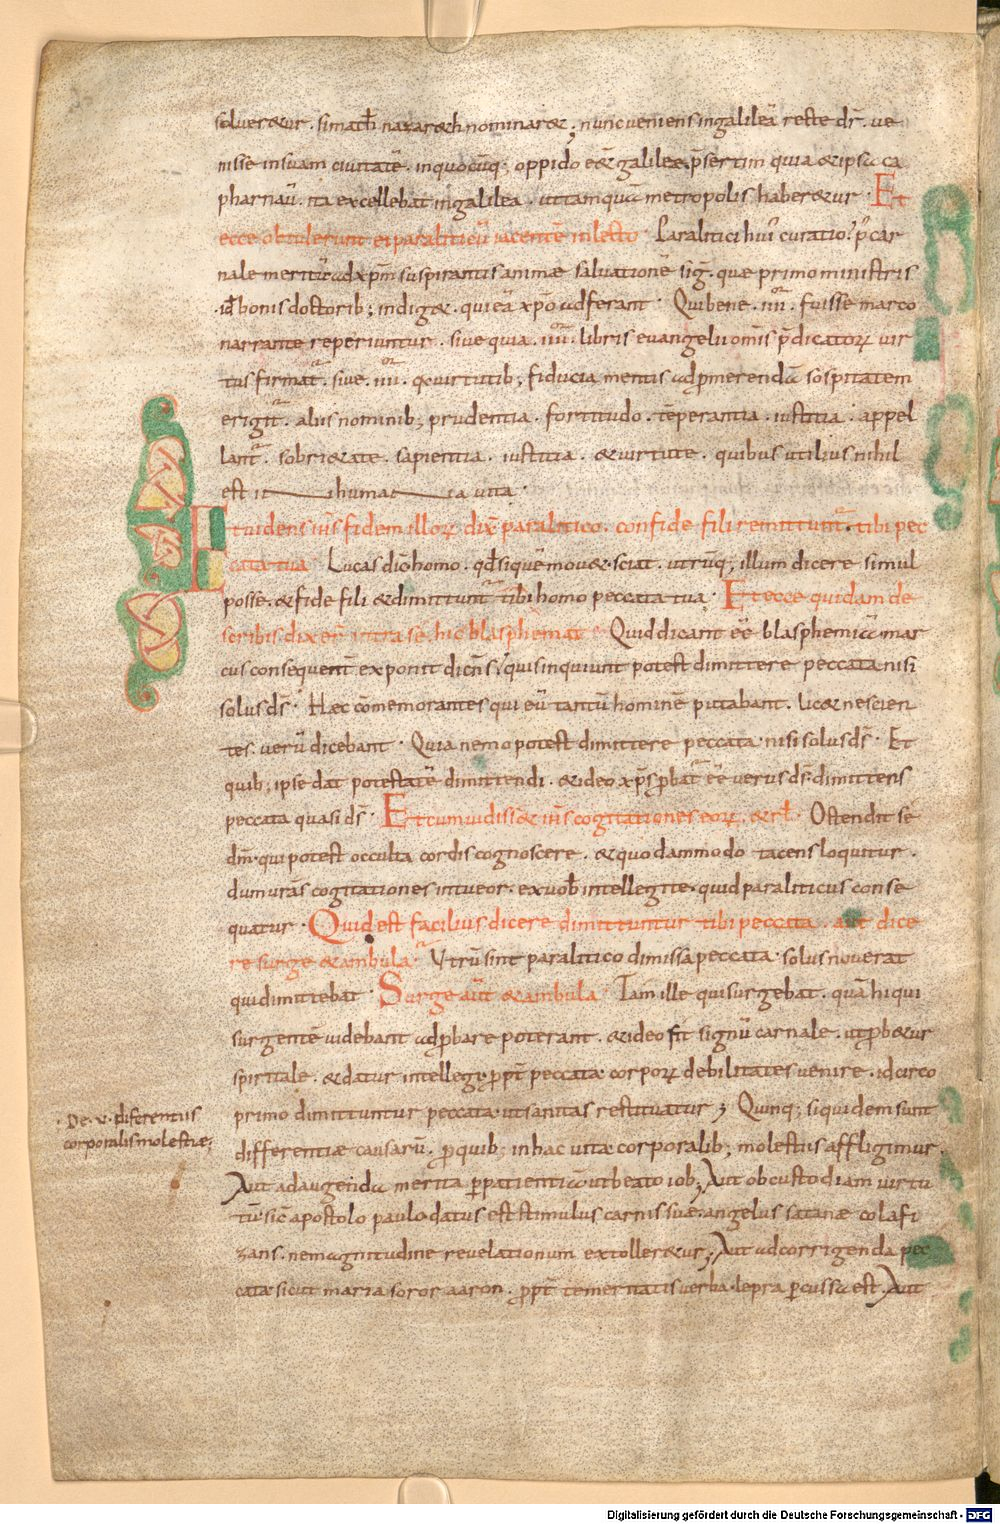 solueretur. si mat̅h nazareth nominaret; nunc ueniens in galileā recte dr̅. ue
nisse in suam ciuitatē. in quocūq; oppido eēt galileae. p̄sertim quia et ipsa ca
pharnaū. ita excellebat in galilea. ut tamquā metropolis haberetur. Et
ecce obtulerunt ei paraliticū iacentē in lecto. Paralitici hui᾽ curatio. p̱ car
nale meritū ad xp̄m suspirantis animae saluationē sig̅. quae primo ministris
.id̅ bonis doctorib; indiget. qui eā xp̄o adferant. Qui bene .iiii. fuisse marco
narrante reperiuntur. siue quia .iiii. libris euangelii om̅is p̄dicatoꝝ uir
tus firmat᾽. siue .iiii. ee̅ uirtutib; fiducia mentis ad p̱merendā sospitatem
erigit᾽. aliis nominib; prudentia. fortitudo. tēperantia. iustitia. appel
lant᾽. sobrietate. sapientia. iustitia. et uirtute. quibus utilius nihil
est in humana uita.
Et uidens ih̅s fidem illoꝝ dix̅ paralitico. confide fili remittunt᾽. tibi pec
cata tua. Lucas dic̅ homo. qd̅ sique mouet. sciat. utrūq; illum dicere simul
posse. et fide fili et dimittunt᾽ tibi homo peccata tua. Et ecce quidam de
scribis dixer̅ intra sē. hic blasphemat. Quid dicant eē̅ blasphemiā mar
cus consequent᾽ exponit dicn̅s. quis inquiunt potest dimittere peccata nisi
solus ds̅. Haec cōmemorantes qui eū tantū hominē putabant. licet nescien
tes. uerū dicebant. Quia nemo potest dimittere peccata. nisi solus ds̅. Et
quib; ipse dat potestatē dimittendi. et ideo xp̄s p̱bat᾽ ēē uerus ds̅. dimittens
peccata quasi ds̅. Et cum uidiss& ih̅s cogitationes eoꝝ. et rl̅. Ostendit sē
dm̅. qui potest occulta cordis cognoscere. et quodammodo tacens loquitur.
dum uras̅ cogitationes intueor. ex uob̅ intellegite. quid paraliticus conse
quatur. Quid est facilius dicere dimittuntur tibi peccata. aut dice
re surge et ambula. Vtrū sint paralitico dimissa peccata. solus nouerat
qui dimittebat. Surge aut̅ et ambula. Tam ille qui surgebat. quā hi qui
surgentē uidebant adp̱bare poterant. et ideo fit signū carnale. ut p̱betur
spiritale. et datur intellegi. p̱pt̅ peccata corpoꝝ debilitates uenire. idcirco
primo dimittuntur peccata. ut sanitas restituatur; Quinq; siquidem sunt
differentiae causarū. p̱ quib; in hac uita corporalib; molestiis affligimur.
Aut ad augenda merita p̱ patientiā ut beato iob; Aut ob custodiam uirtu
tū. sic̅ apostolo paulo datus est stimulus carnis suae. angelus satanae colafi
zans. ne magnitudine reuelationum extolleretur; Aut ad corrigenda pec
cata sicut maria soror aaron. p̱pt̅ temeritatis uerba. lepra percussa est. Aut
De .v. diferentiis
corporalis molestiae;
Digitalisierung gefördert durch die Deutsche Forschungsgemeinschaft - DFG